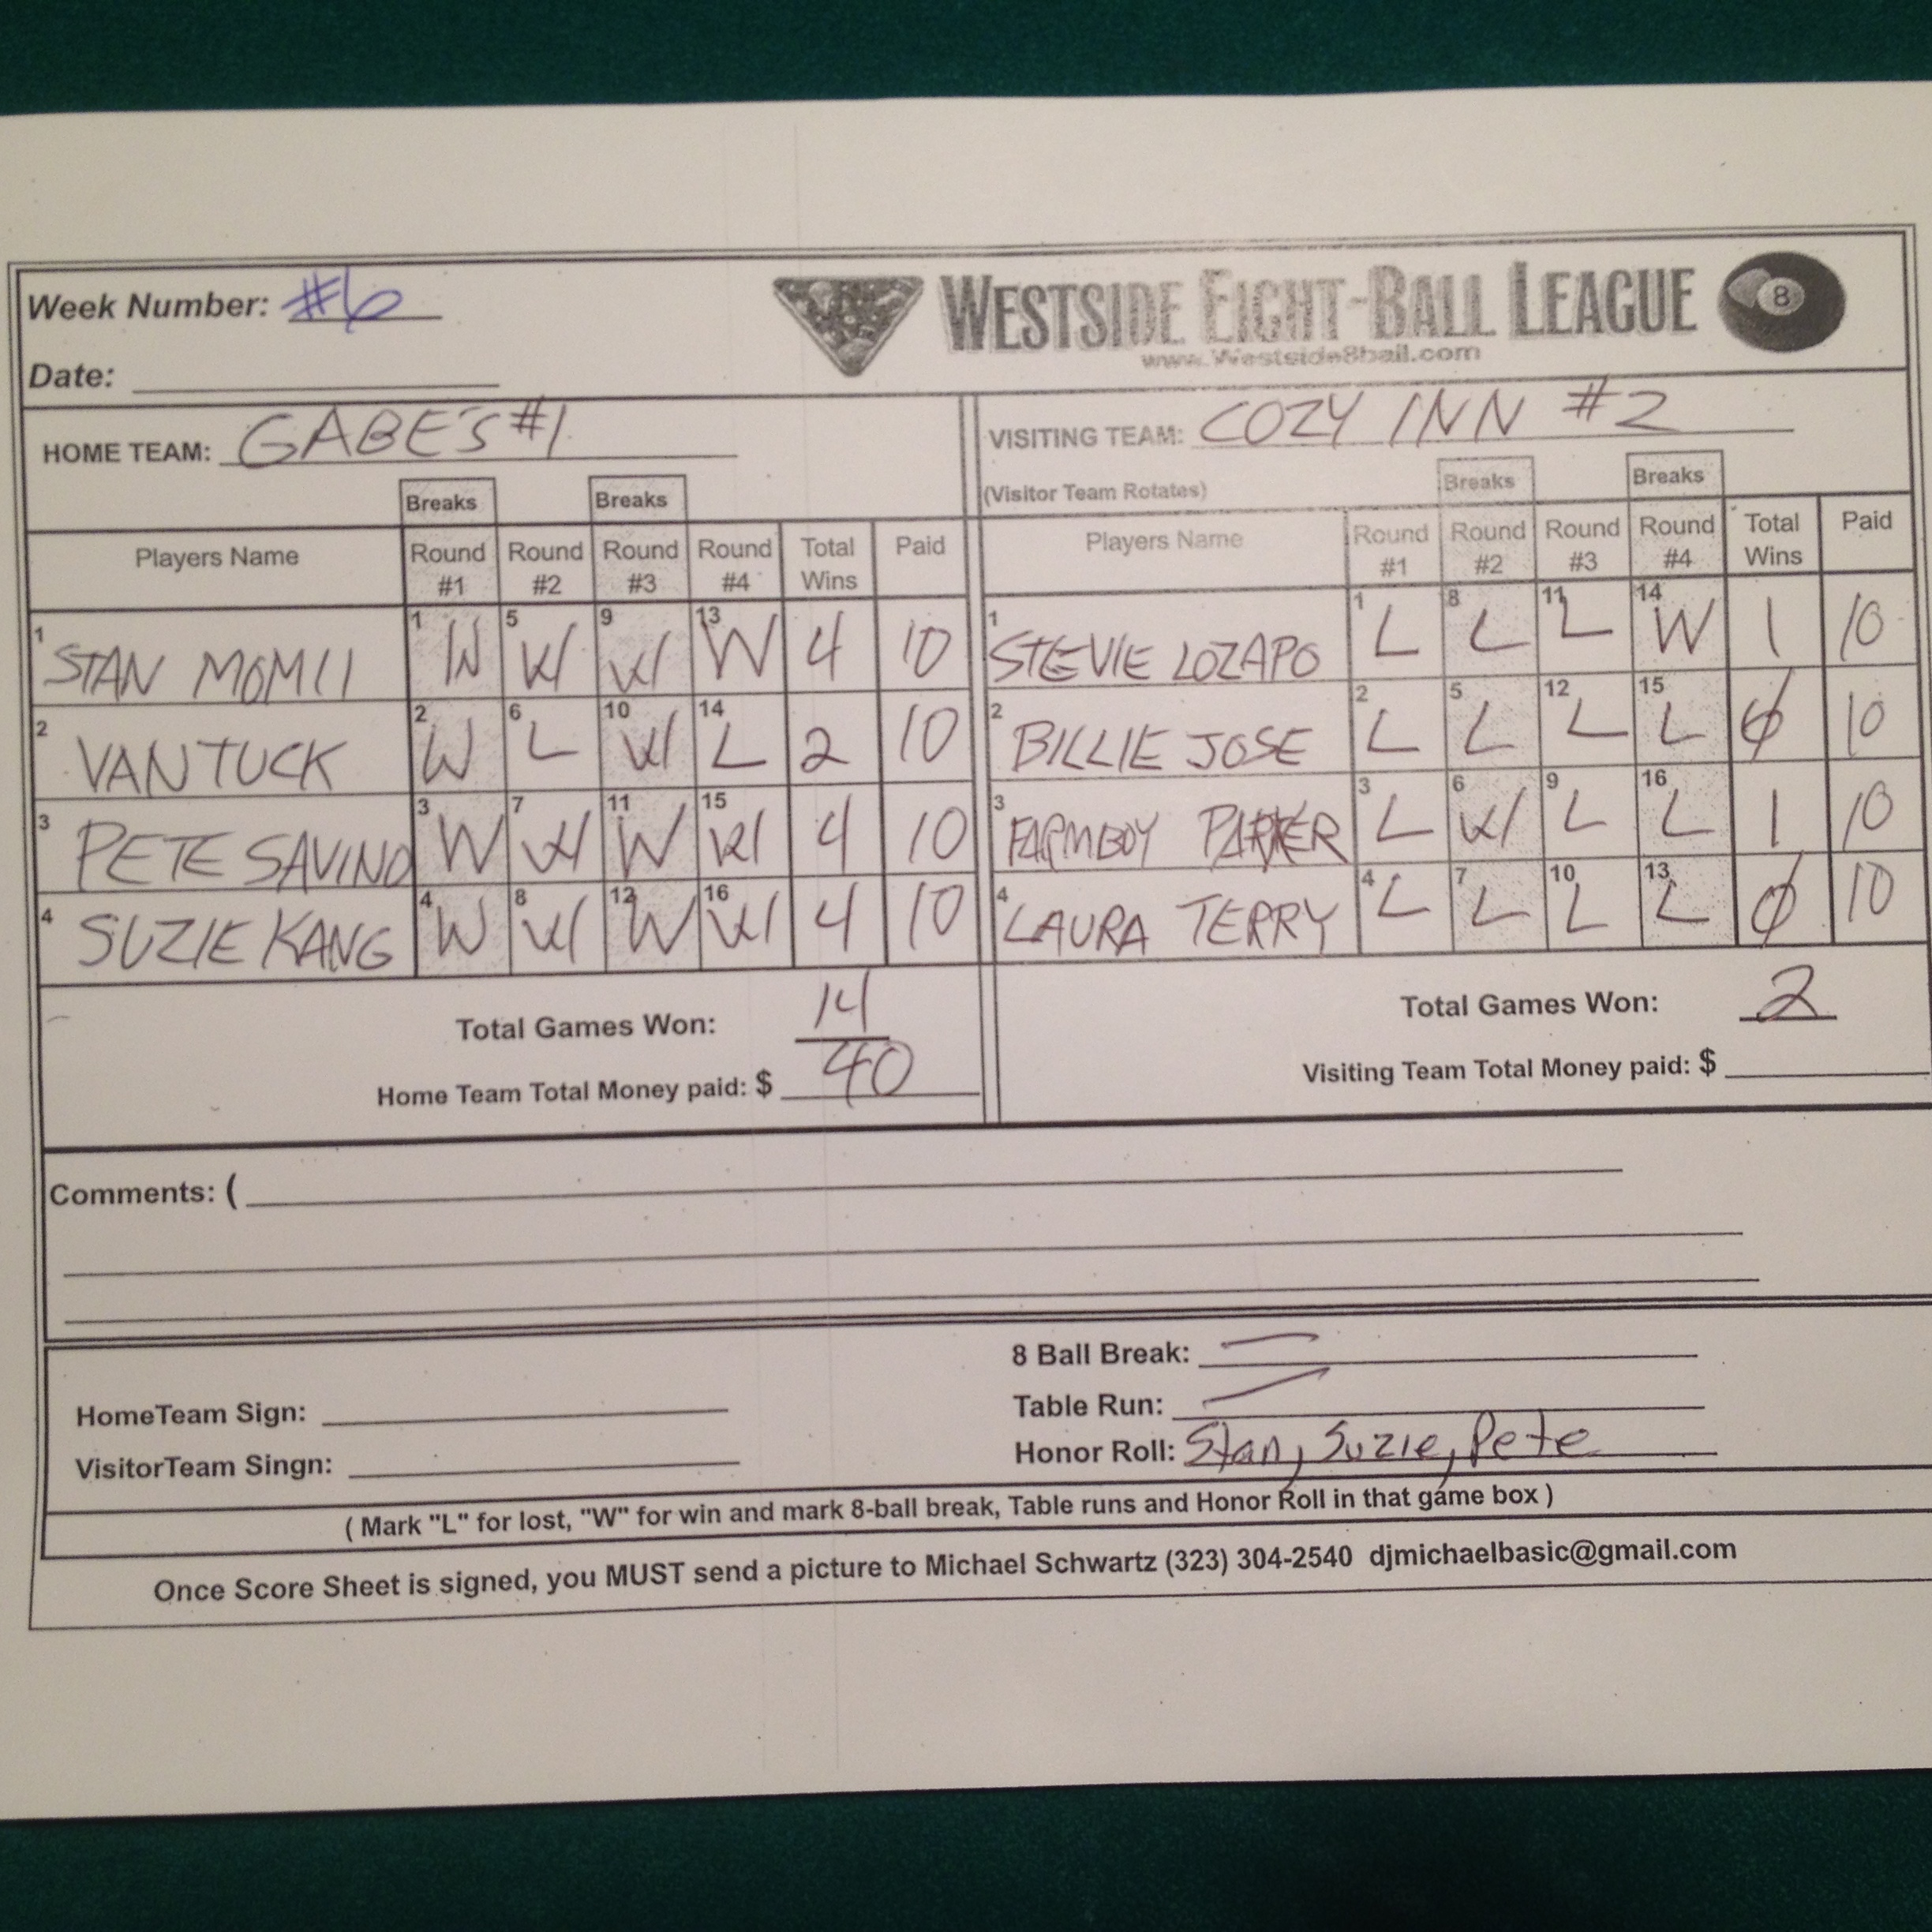 Week Number: #6
WESTSIDE EIGHT-BALL LEAGUE 8
www.Westside8ball.com
Date:
HOME TEAM: GABE'S #1
VISITING TEAM: COZY INN #2
(Visitor Team Rotates)
Breaks Breaks Breaks Breaks
Players Name Round #1 Round #2 Round #3 Round #4 Total Wins Paid Players Name Round #1 Round #2 Round #3 Round #4 Total Wins Paid
1 STAN MOMII 1 W 5 W 9 W 13 W 4 10 1 STEVIE LOZAPO 1 L 8 L 11 L 14 W 1 10
2 VAN TUCK 2 W 6 L 10 W 14 L 2 10 2 BILLIE JOSE 2 L 5 L 12 L 15 L 0 10
3 PETE SAVINO 3 W 7 W 11 W 15 W 4 10 3 FARMBOY PARKER 3 L 6 W 9 L 16 L 1 10
4 SUZIE KANG 4 W 8 W 12 W 16 W 4 10 4 LAURA TERRY 4 L 7 L 10 L 13 L 0 10
Total Games Won: 14
Total Games Won: 2
Home Team Total Money paid: $ 40
Visiting Team Total Money paid: $
Comments: (
8 Ball Break:
HomeTeam Sign:
Table Run:
VisitorTeam Singn:
Honor Roll: Stan, Suzie, Pete
( Mark "L" for lost, "W" for win and mark 8-ball break, Table runs and Honor Roll in that game box )
Once Score Sheet is signed, you MUST send a picture to Michael Schwartz (323) 304-2540 djmichaelbasic@gmail.com